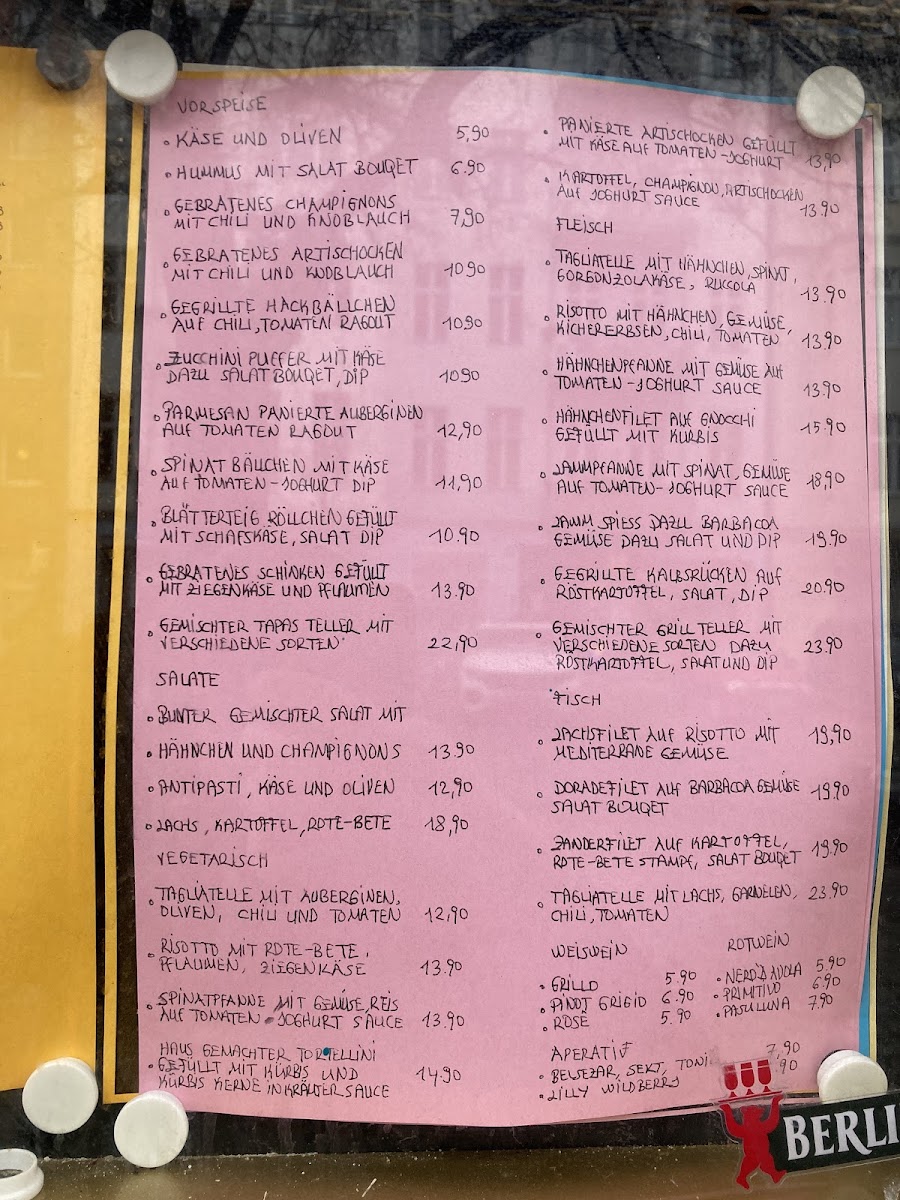 VORSPEISE
• KÄSE UND OLIVEN 5,90
• HUMMUS MIT SALAT BOUQET 6.90
• GEBRATENES CHAMPIGNONS
MIT CHILI UND KNOBLAUCH 7,90
• GEBRATENES ARTISCHOCKEN
MIT CHILI UND KNOBLAUCH 10.90
• GEGRILLTE HACKBÄLLCHEN
AUF CHILI, TOMATEN RAGOUT 10.90
• ZUCCHINI PUFFER MIT KÄSE
DAZU SALAT BOUQET, DIP 10.90
• PARMESAN PANIERTE AUBERGINEN
AUF TOMATEN RAGOUT 12,90
• SPINAT BÄLLCHEN MIT KÄSE
AUF TOMATEN-JOGHURT DIP 11,90
• BLÄTTERTEIG RÖLLCHEN GEFÜLLT
MIT SCHAFSKÄSE, SALAT DIP 10.90
• GEBRATENES SCHINKEN GEFÜLLT
MIT ZIEGENKÄSE UND PFLAUMEN 13.90
• GEMISCHTER TAPAS TELLER MIT
VERSCHIEDENE SORTEN 22,90
SALATE
• BUNTER GEMISCHTER SALAT MIT
• HÄHNCHEN UND CHAMPIGNONS 13.90
• ANTIPASTI, KÄSE UND OLIVEN 12,90
• LACHS, KARTOFFEL, ROTE-BETE 18,90
VEGETARISCH
• TAGLIATELLE MIT AUBERGINEN,
OLIVEN, CHILI UND TOMATEN 12,90
• RISOTTO MIT ROTE-BETE,
PFLAUMEN, ZIEGENKÄSE 13.90
• SPINATPFANNE MIT GEMÜSE, REIS
AUF TOMATEN-JOGHURT SAUCE 13.90
HAUS GEMACHTER TORTELLINI
• GEFÜLLT MIT KÜRBIS UND
KÜRBIS KERNE IN KRÄUTER SAUCE 14.90
• PANIERTE ARTISCHOCKEN GEFÜLLT
MIT KÄSE AUF TOMATEN-JOGHURT 13,90
• KARTOFFEL, CHAMPIGNON, ARTISCHOCKEN
AUF JOGHURT SAUCE 13.90
FLEISCH
• TAGLIATELLE MIT HÄHNCHEN, SPINAT,
GORGONZOLAKÄSE, RUCCOLA 13.90
• RISOTTO MIT HÄHNCHEN, GEMÜSE,
KICHERERBSEN, CHILI, TOMATEN 13.90
• HÄHNCHENPFANNE MIT GEMÜSE AUF
TOMATEN-JOGHURT SAUCE 13.90
• HÄHNCHENFILET AUF GNOCCHI
GEFÜLLT MIT KÜRBIS 15.90
• LAMMPFANNE MIT SPINAT, GEMÜSE
AUF TOMATEN-JOGHURT SAUCE 18,90
• LAMM SPIESS DAZU BARBACOA
GEMÜSE DAZU SALAT UND DIP 19.90
• GEGRILLTE KALBSRÜCKEN AUF
RÖSTKARTOFFEL, SALAT, DIP 20.90
• GEMISCHTER GRILL TELLER MIT
VERSCHIEDENE SORTEN DAZU 23.90
RÖSTKARTOFFEL, SALAT UND DIP
FISCH
• LACHSFILET AUF RISOTTO MIT 19,90
MEDITERRANE GEMÜSE
• DORADEFILET AUF BARBACOA GEMÜSE 19.90
SALAT BOUQET
• ZANDERFILET AUF KARTOFFEL, 19.90
ROTE-BETE STAMPF, SALAT BOUQET
• TAGLIATELLE MIT LACHS, GARNELEN, 23.90
CHILI, TOMATEN
WEISWEIN
• GRILLO 5.90
• PINOT GRIGIO 6.90
• ROSÉ 5.90
ROTWEIN
• NERO'D AVOLA 5.90
• PRIMITIVO 6.90
• PASULUNA 7.90
APERATIF
• BELSEZAR, SEKT, TONI 7,90
• LILLY WILDBERRY .90
BERLI